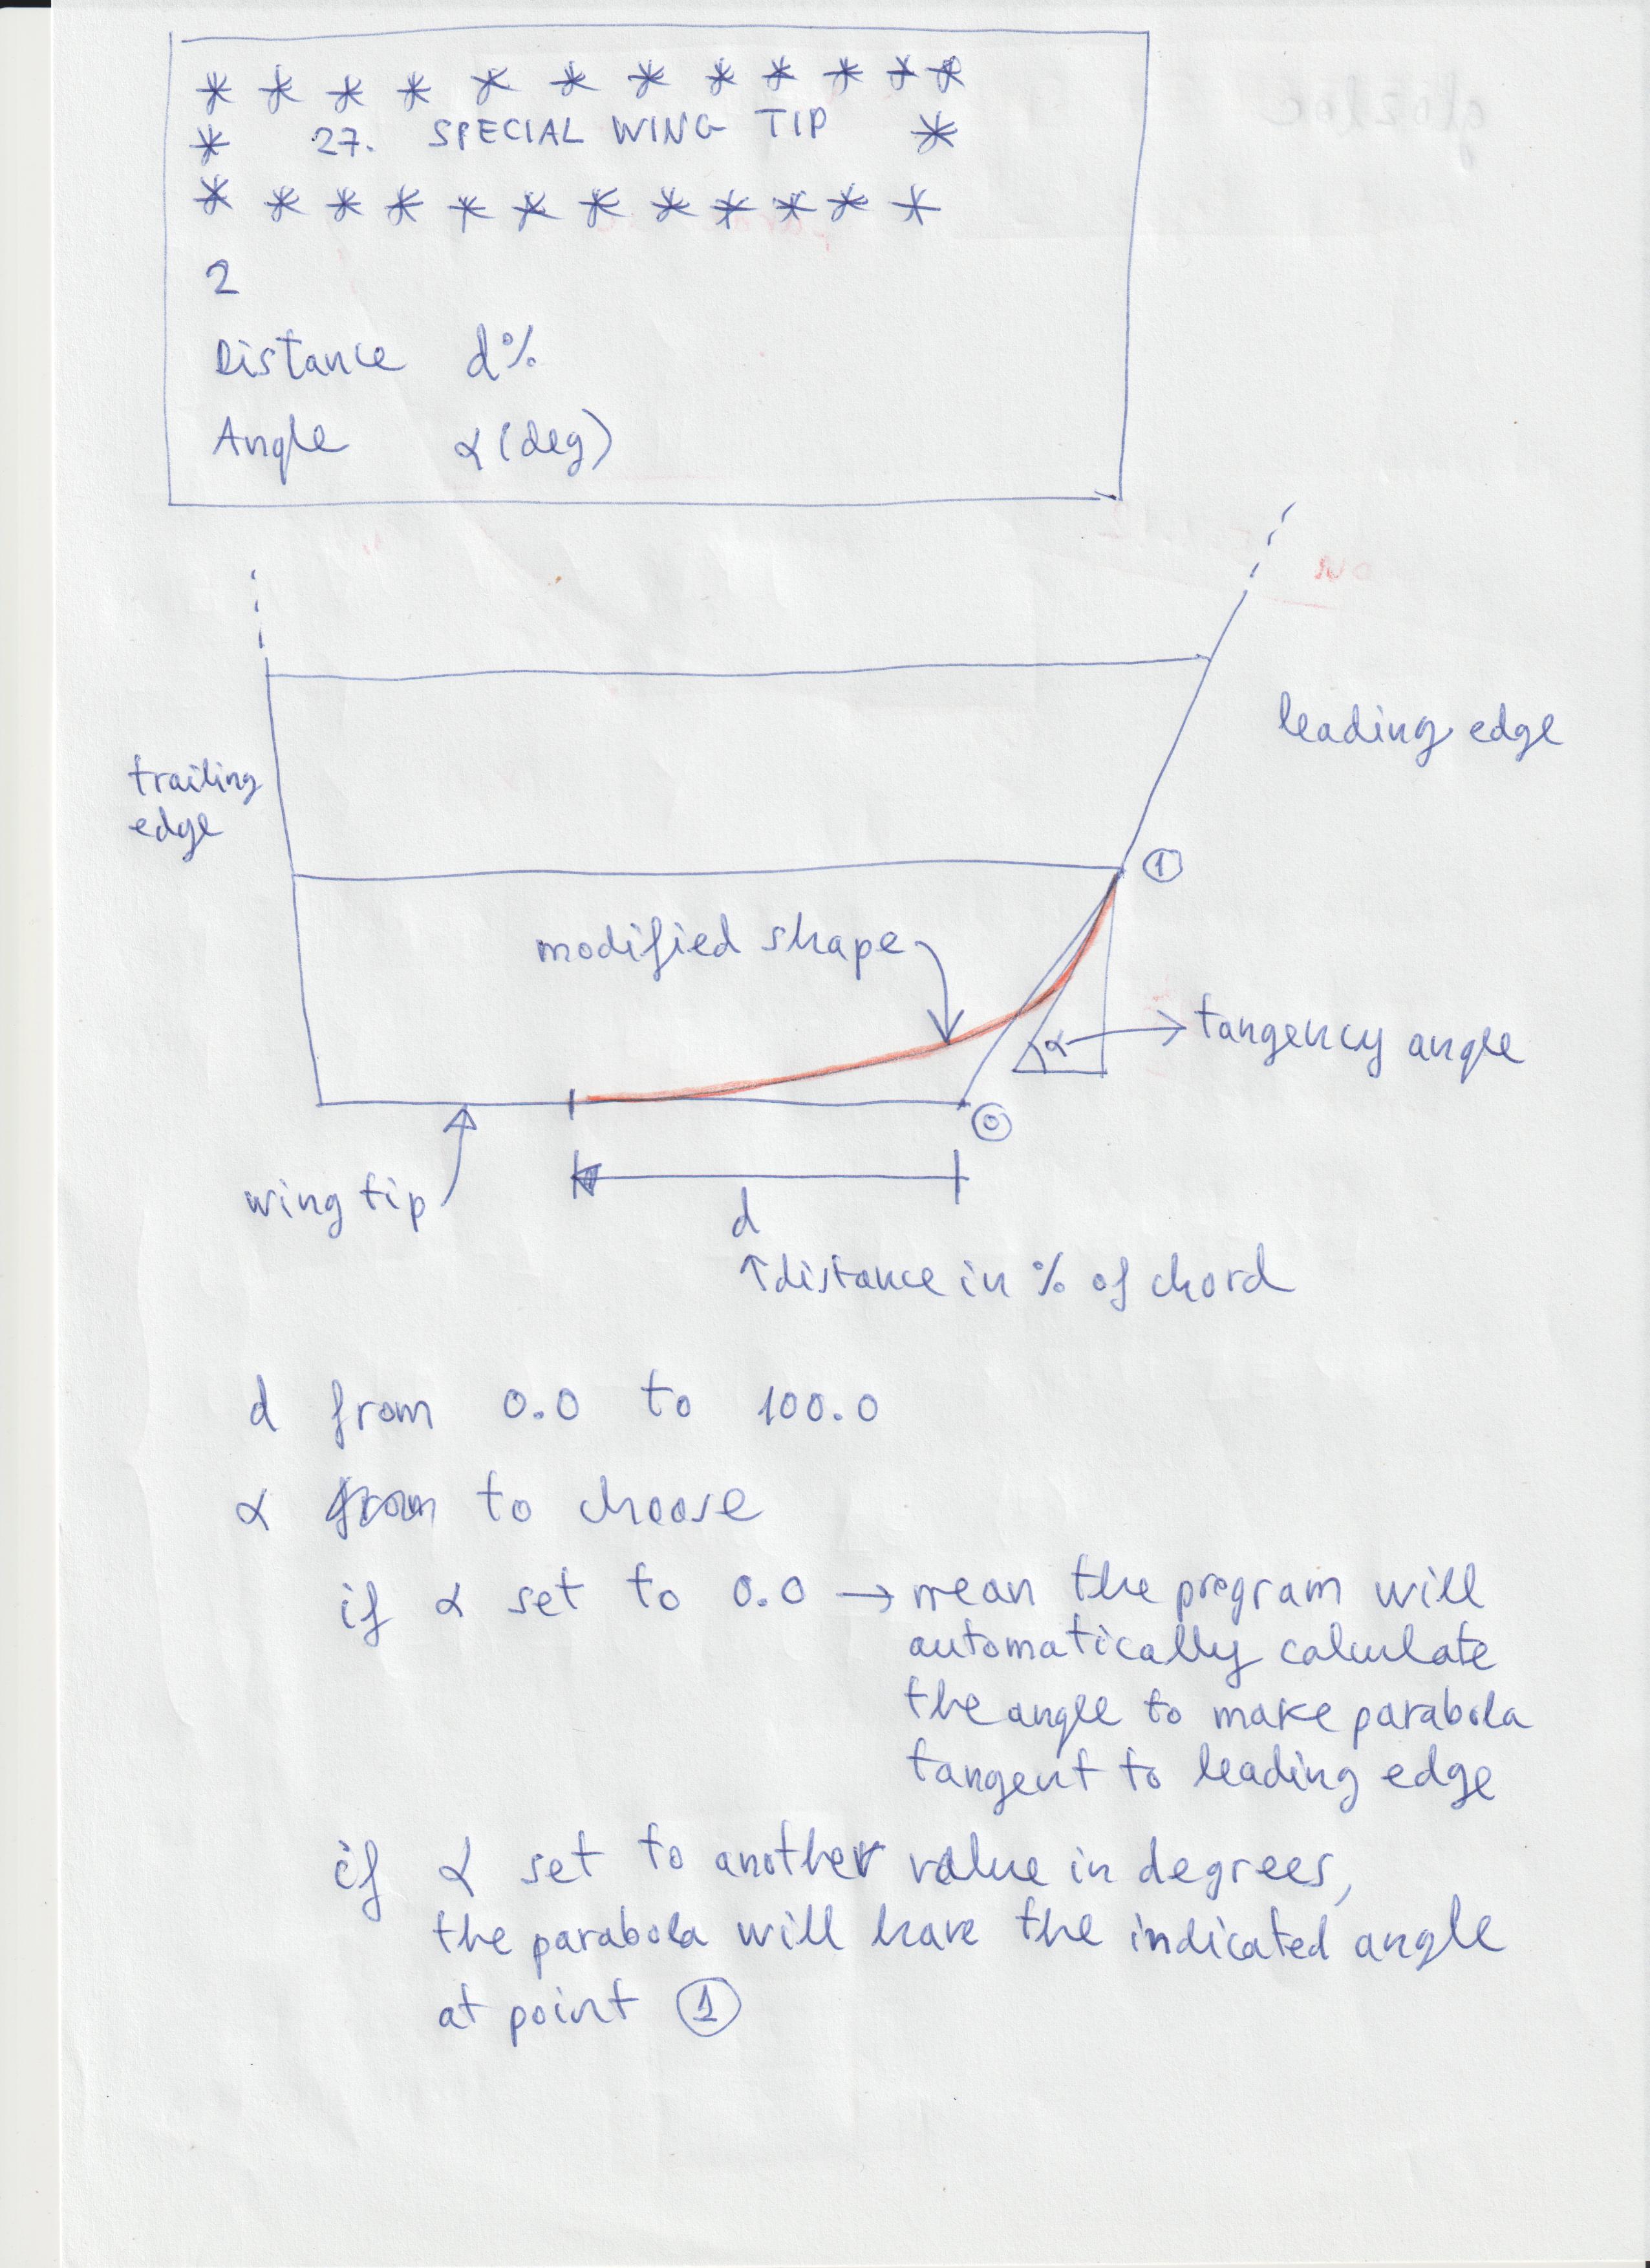 * * * * * * * * * * * *
* 27. SPECIAL WING TIP *
* * * * * * * * * * * *
2
Distance d%
Angle α (deg)
leading edge
trailing
edge
①
modified shape
α
tangency angle
⓪
wing tip
d
↑distance in % of chord
d from 0.0 to 100.0
α to choose
if α set to 0.0 → mean the program will
automatically calculate
the angle to make parabola
tangent to leading edge
if α set to another value in degrees,
the parabola will have the indicated angle
at point ①